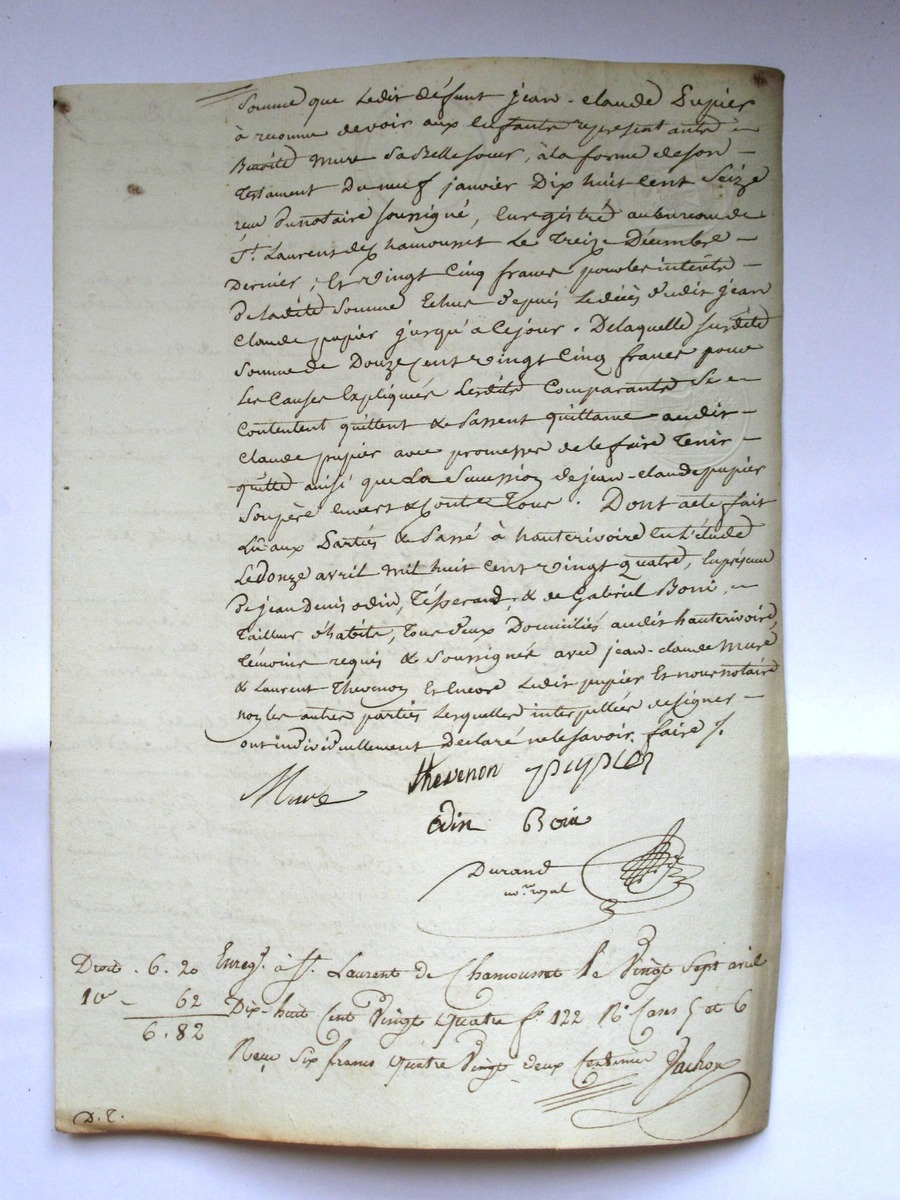 Somme que Ledit défunt jean-claude Pupier
à reconnu devoir aux Enfants représentants
Benoite Mure Sa Belle soeur, à la forme de son
Testament du neuf janvier Dix huit Cent Seize
reçu du notaire soussigné, Enregistré au bureau de
St. Laurent de chamousset Le Treize Décembre
Dernier ; Et vingt Cinq francs pour les intérêts
De ladite Somme Echus depuis Le décès dudit jean
Claude pupier jusqu'a Ce jour. De laquelle susdite
Somme de Douze Cent vingt Cinq francs pour
Les Causes Expliquées Lesdits Comparants Se
Contentent quittent & Passent quittance audit
Claude pupier avec promesse de le faire Tenir
quitte ainsi que La Succession de jean-claude pupier
Son père Envers & Contre Tous. Dont acte fait
Lû aux Parties & Passé à hauterivoire En L'étude
Le Douze avril Mil huit Cent vingt quatre, En présence
De jean Denis odin, Tisserand, & de Gabriel Boni,
Tailleur d'habits, Tous deux Domiciliés audit hauterivoire,
Témoins requis & Soussignés avec jean-claude Mure
& Laurent Thevenon Et Encore Ledit pupier Et nous notaire
non les autres parties Lesquelles interpellées de signer
ont individuellement Déclaré ne le savoir faire ./.
Mure Thevenon pupier
Odin Boni
Durand
nore. royal
Droit . 6. 20 Enregt. à St. Laurent de Chamousset le Vingt Sept avril
10e 62 Dix-huit Cent Vingt quatre fo. 122 Ro. Cases 5 et 6
6. 82 Reçu Six francs quatre Vingt deux Centimes
D. T.